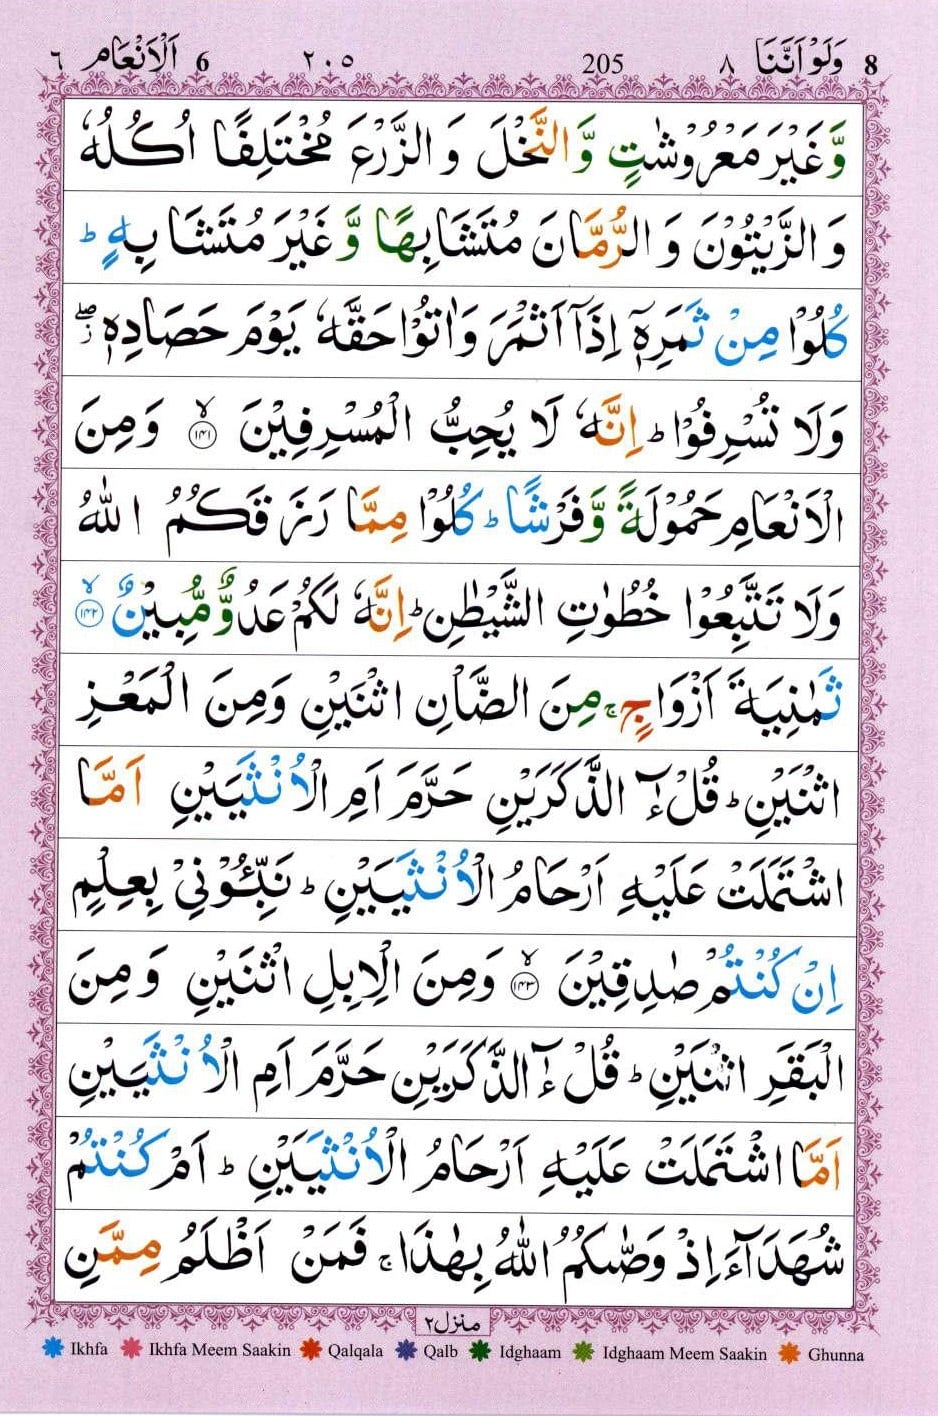 8 وَلَوْ اَنَّنَا ٨ 205 ٢٠٥ 6 اَلْاَنْعَام ٦
وَّ غَيْرَ مَعْرُوْشٰتٍ وَّ النَّخْلَ وَ الزَّرْعَ مُخْتَلِفًا اُكُلُهٗ
وَ الزَّيْتُوْنَ وَ الرُّمَّانَ مُتَشَابِهًا وَّ غَيْرَ مُتَشَابِهٍ ؕ
كُلُوْا مِنْ ثَمَرِهٖۤ اِذَاۤ اَثْمَرَ وَاٰتُوْا حَقَّهٗ يَوْمَ حَصَادِهٖ ۖؗ
وَلَا تُسْرِفُوْا ؕ اِنَّهٗ لَا يُحِبُّ الْمُسْرِفِيْنَ ۙ﴿۱۴۱﴾ وَمِنَ
الْاَنْعَامِ حَمُوْلَةً وَّفَرْشًا ؕ كُلُوْا مِمَّا رَزَقَكُمُ اللّٰهُ
وَلَا تَتَّبِعُوْا خُطُوٰتِ الشَّيْطٰنِ ؕ اِنَّهٗ لَكُمْ عَدُوٌّ مُّبِيْنٌ ۙ﴿۱۴۲﴾
ثَمٰنِيَةَ اَزْوَاجٍ ۚ مِنَ الضَّاْنِ اثْنَيْنِ وَمِنَ الْمَعْزِ
اثْنَيْنِ ؕ قُلْ ءٰٓالذَّكَرَيْنِ حَرَّمَ اَمِ الْاُنْثَيَيْنِ اَمَّا
اشْتَمَلَتْ عَلَيْهِ اَرْحَامُ الْاُنْثَيَيْنِ ؕ نَبِّـُٔوْنِيْ بِعِلْمٍ
اِنْ كُنْتُمْ صٰدِقِيْنَ ۙ﴿۱۴۳﴾ وَمِنَ الْاِبِلِ اثْنَيْنِ وَمِنَ
الْبَقَرِ اثْنَيْنِ ؕ قُلْ ءٰٓالذَّكَرَيْنِ حَرَّمَ اَمِ الْاُنْثَيَيْنِ
اَمَّا اشْتَمَلَتْ عَلَيْهِ اَرْحَامُ الْاُنْثَيَيْنِ ؕ اَمْ كُنْتُمْ
شُهَدَآءَ اِذْ وَصّٰىكُمُ اللّٰهُ بِهٰذَا ۚ فَمَنْ اَظْلَمُ مِمَّنِ
منزل٢
Ikhfa Ikhfa Meem Saakin Qalqala Qalb Idghaam Idghaam Meem Saakin Ghunna